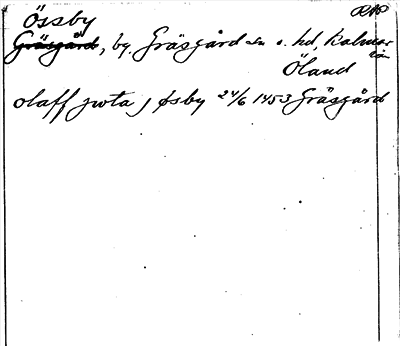 Össby RAP
Gräsgård, by. Gräsgård sn o. hd, Kalmar län
Öland
olaff jwta j øsby 24/6 1453 Gräsgård